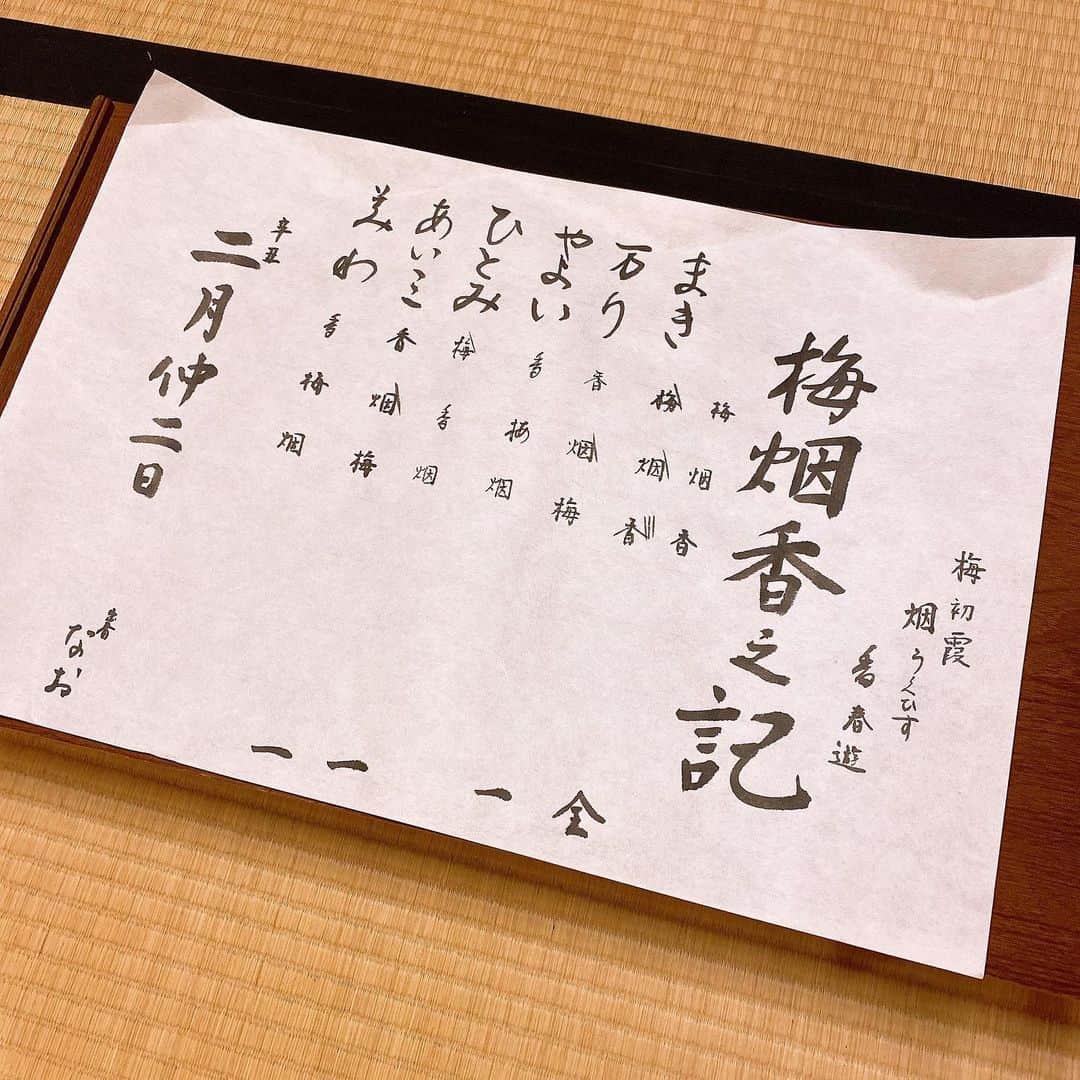 梅 初霞
烟 うくひす
香 春遊
梅烟香之記
梅 烟 香
まき 梅 烟 香 全
万り 香 烟 梅 一
やよい 香 梅 烟
ひとみ 梅 香 烟 一
あいこ 香 烟 梅 一
美わ 香 梅 烟
辛丑
二月仲二日
なお